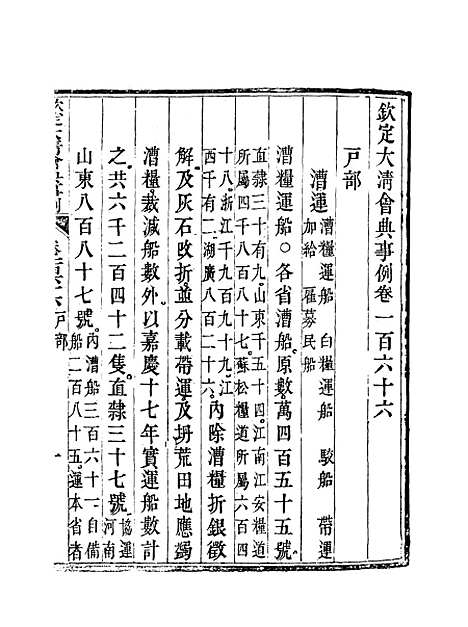 欽定大清會典事例卷一百六十六
戸部
漕運漕糧運船 白糧運船 駁船 帶運
加給 雇募民船
漕糧運船○各省漕船原數萬四百五十五號
直隸三十有九山東千五十四江南江安糧道
所屬四千八百八十七蘇松糧道所屬六百四
十八浙江千九百九十九江
西千有二湖廣八百二十六內除漕糧折銀徵
解及灰石改折並分載帶運及坍荒田地應蠲
漕糧裁減船數外以嘉慶十七年實運船數計
之共六千二百四十二隻直隸三十七號協運
河南
山東八百八十七號內漕船三百六十一自備
船二百八十五運本省者
戸部
一